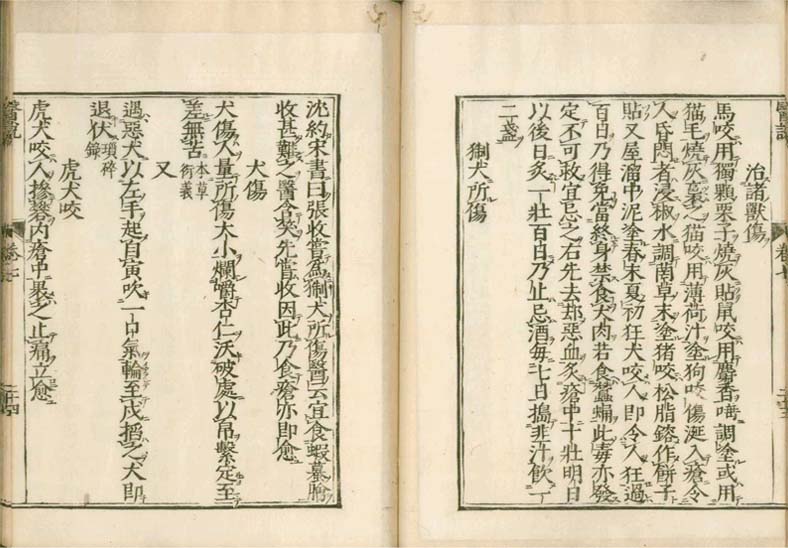 治諸獸傷
馬咬用獨顆栗子燒灰貼鼠咬用麝香唾調塗或用
猫毛燒灰裹之猫咬用薄荷汁塗狗咬傷涎入瘡令
人昏悶者浸椒水調南草末塗猪咬松脂鎔作餅子
貼又屋溜中泥塗春末夏初狂犬咬人即令人狂過
百日乃得免當終身禁食犬肉若食蠶蛹此毒亦發
定不可敢宜忌之右先去却惡血灸瘡中十壯明日
以後日灸一壯百日乃止忌酒每七日搗韭汁飲一
二盞
猘犬所傷
沈約宋書曰張收嘗為猘犬所傷醫云宜食蝦蟇膾
收甚難之醫含笑先嘗收因此乃食瘡亦即愈
犬傷
犬傷人量所傷大小爛嚼杏仁沃破處以帛繫定至
差無苦 本草衍義
又
遇惡犬以左手起自寅吹一口氣輪至戌掐之犬即
退伏 瑣碎錄
虎犬咬
虎犬咬人摻礬內瘡中裹之止痛立愈
醫說
卷七
二十四